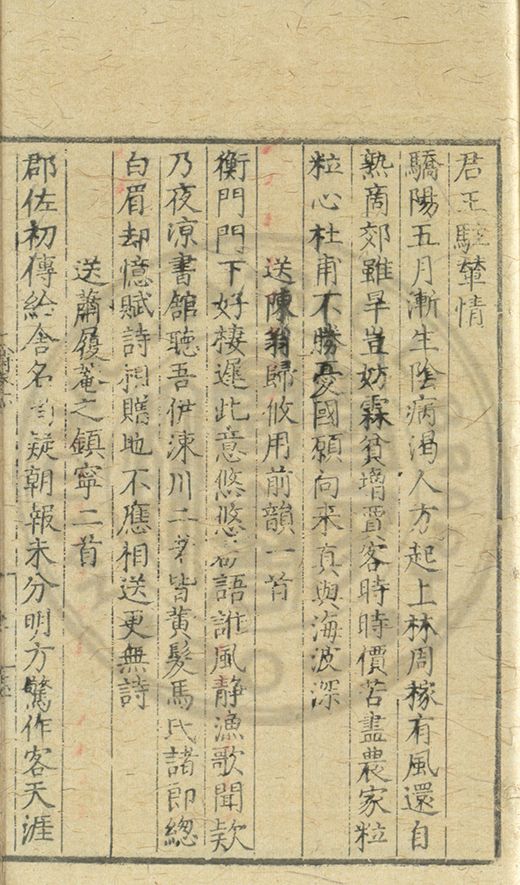 君王駐輦情
驕陽五月漸生陰病渴人方起上林周稼有風還自
熟商郊雖旱豈妨霖貧增賈客時時價苦盡農家粒
粒心杜甫不勝憂國願向来真與海波深
送陳翁歸攸用前韻一首
衡門門下好棲遲此意悠悠語誰風静漁歌聞欵
乃夜凉書館聽吾伊涑川二皆黄髮馬氏諸郎總
白眉却憶賦詩相贈地不應相送更無詩
送蕭履菴之鎮寧二首
郡佐初傳給舍名疑朝報未分明方驚作客天涯